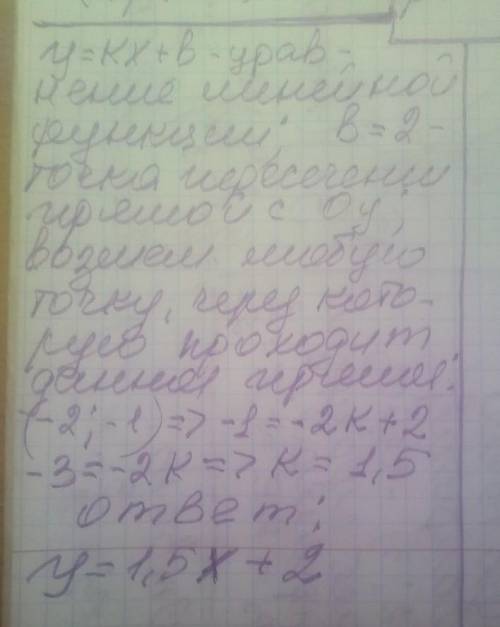 y=kx+в-урав-
нение линейной
функции; в=2-
точка пересечении
прямой с Oy;
возмем любую
точку, через кото-
рую проходит
данная прямая:
(-2;-1)=>-1=-2k+2
-3=-2k=>k=1,5
ответ:
y=1,5x+2